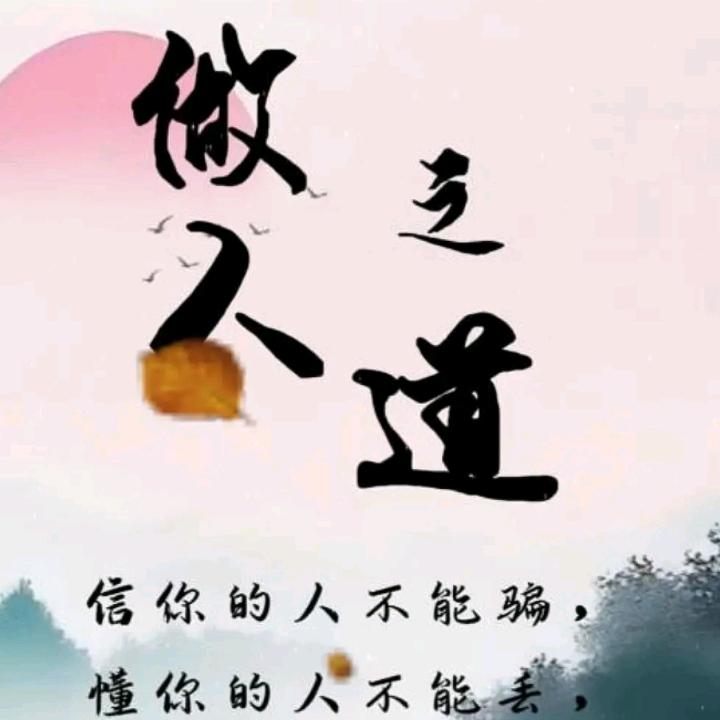 做人
之道
信你的人不能骗，
懂你的人不能丢，